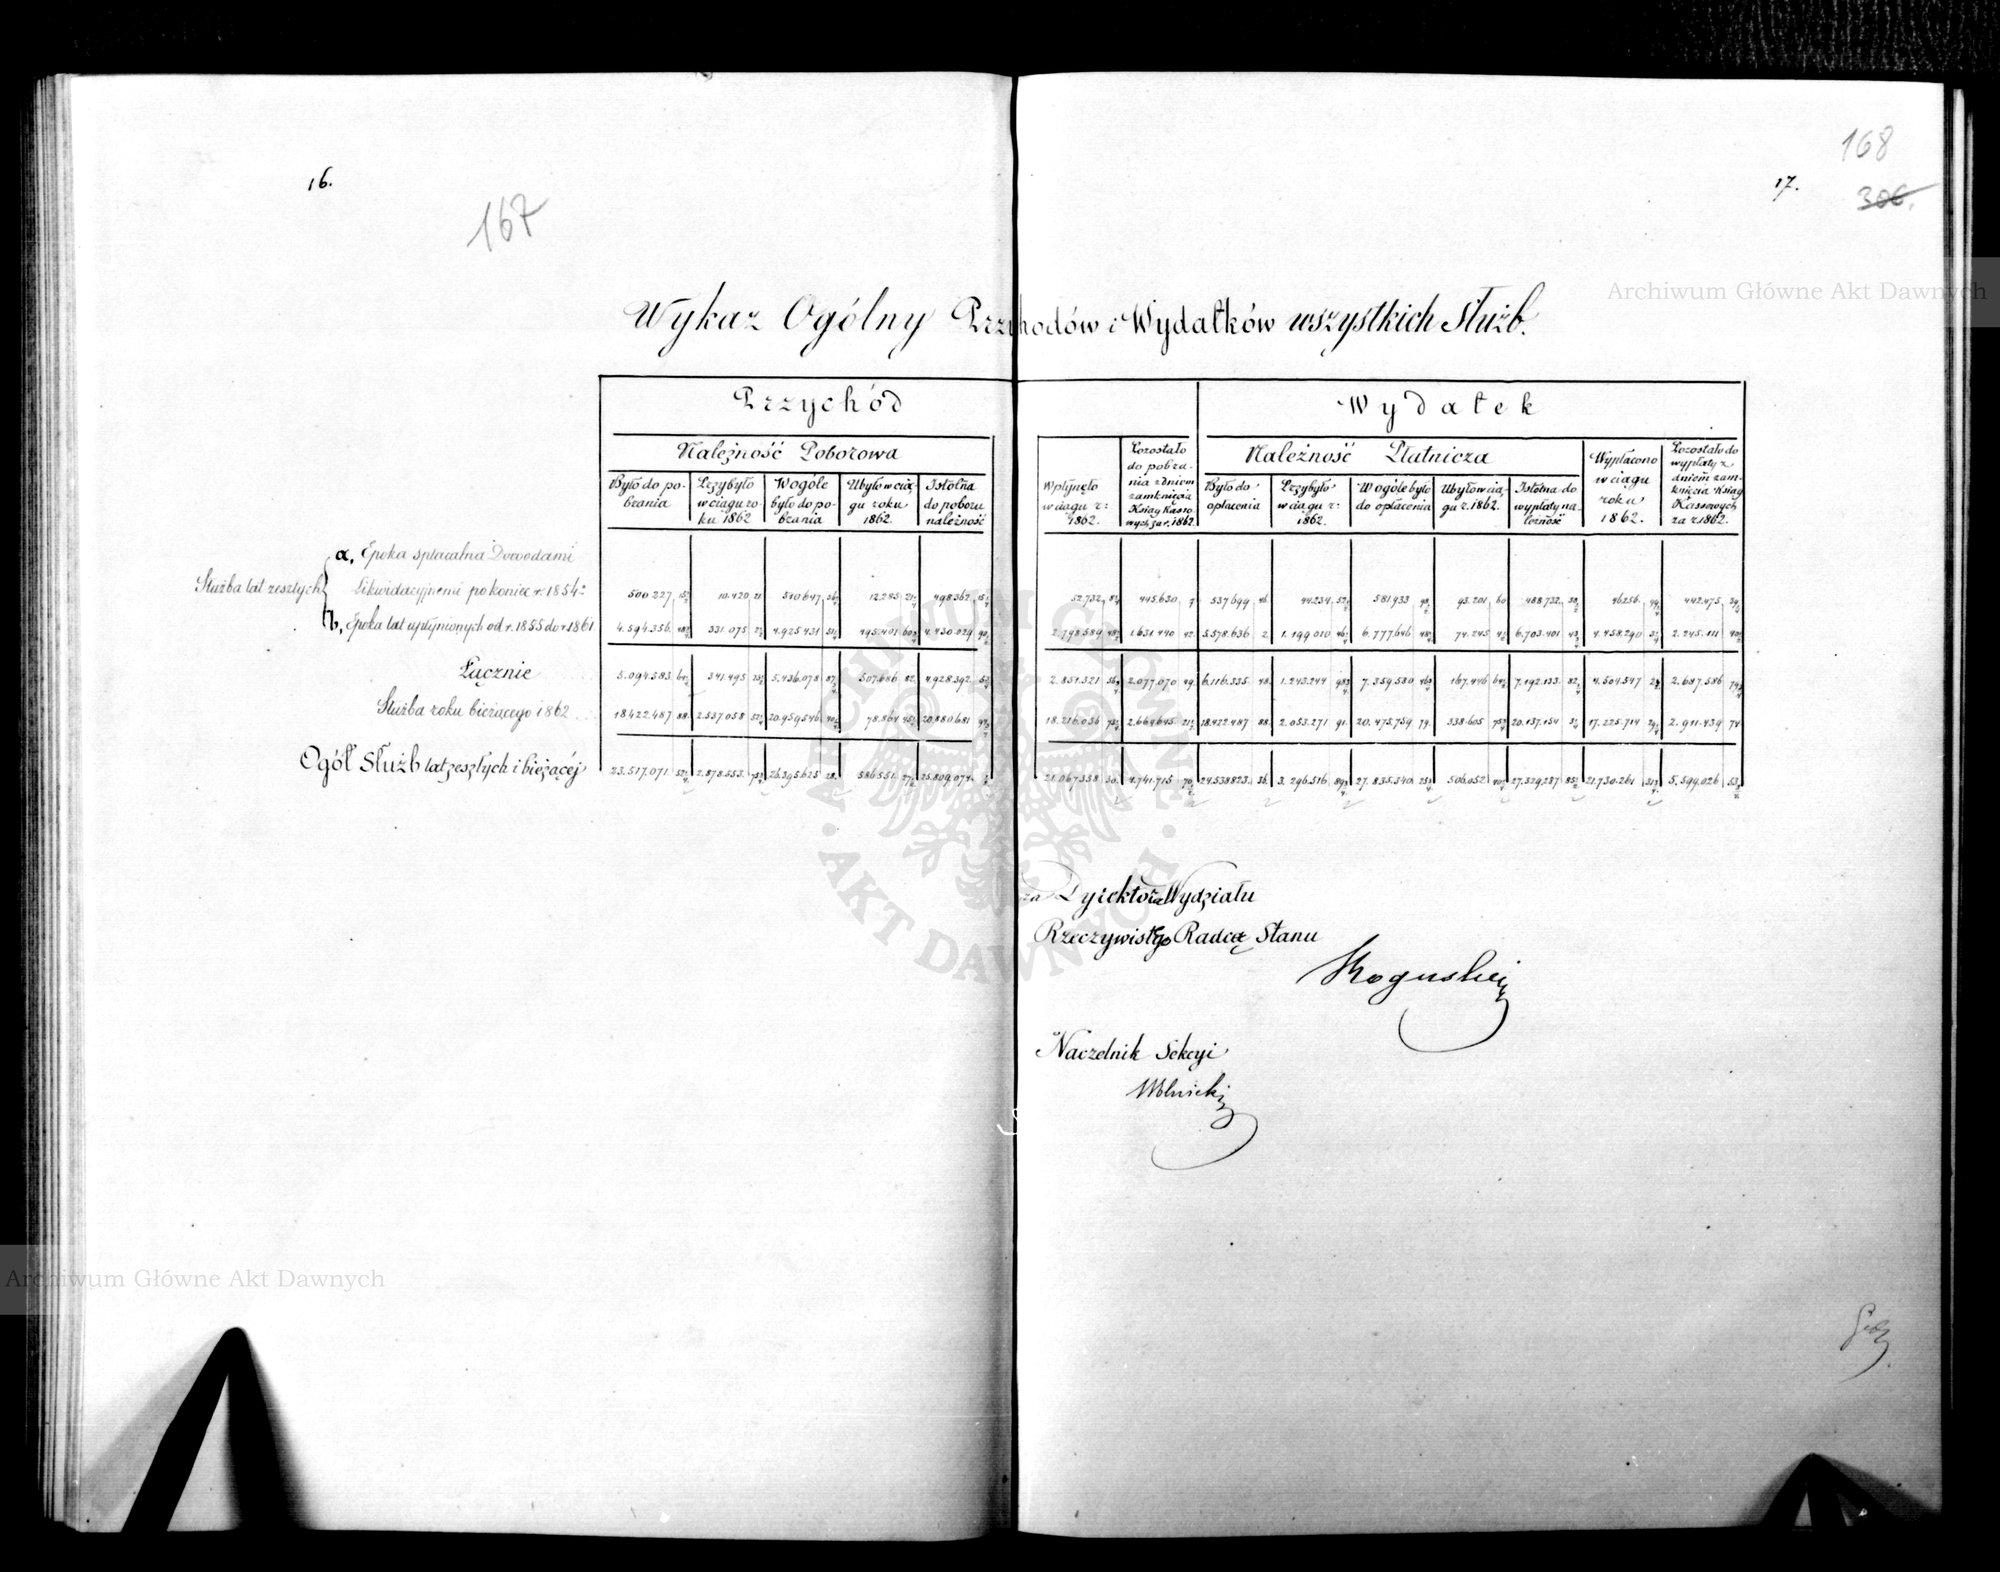 16.
167
168
17.
306.
Wykaz Ogólny Przychodów i Wydatków wszystkich Służb.
Przychód
Wydatek
Należność Poborowa
Należność Płatnicza
Było do pobrania
Przybyło w ciągu roku 1862
W ogóle było do pobrania
Ubyło w ciągu roku 1862.
Istotna do poboru należność
Wpłynęło w ciągu r: 1862.
Pozostało do pobrania z dniem zamknięcia Ksiąg Kassowych za r. 1862.
Było do opłacenia
Przybyło w ciągu r: 1862.
W ogóle było do opłacenia
Ubyło w ciągu r. 1862.
Istotna do wypłaty należność
Wypłacono w ciągu roku 1862.
Pozostało do wypłaty z dniem zamknięcia Ksiąg Kassowych za r. 1862.
Służba lat zeszłych
a, Epoka spłacalna Dowodami
Likwidacyjnemi po koniec r. 1854
500.227 10.420 21 510.647 12.285 498.362 52.732 445.630 537.699 44.234 581.933 93.201 60 488.732 46.256 442.475
b, Epoka lat upłynionych od r. 1855 do r. 1861
4.594.356. 331.075 4.925.431 495.401 4.430.029 2.798.589 1.631.440 5.578.636 1.199.010 6.777.646 74.245 6.703.401 4.458.290 2.245.111
Łącznie
5.094.583. 341.495 5.436.078 507.686 4.928.392 2.851.321 2.077.070 6.116.335 1.243.244 7.359.580 167.446 7.192.133. 4.504.547 2.687.586
Służba roku bieżącego 1862
18.422.487 88. 2.537.058 20.959.546 78.864 20.880.681 18.216.036 2.664.645 18.422.487 88. 2.053.271 91. 20.475.759 79. 338.605 20.137.154 17.225.714 2.911.439 74
Ogół Służb lat zeszłych i bieżącéj
23.517.071. 2.878.553. 26.395.625 28. 586.551. 25.809.074 21.067.358 30. 4.741.715 24.538.823. 36. 3.296.516 27.835.340 506.052 27.329.287 21.730.261 5.599.026
za Dyrektora Wydziału
Rzeczywistego Radcę Stanu
Roguski
Naczelnik Sekcyi
Wolnicki
Archiwum Główne Akt Dawnych
Archiwum Główne Akt Dawnych
ARCHIWUM GŁÓWNE • AKT DAWNYCH •